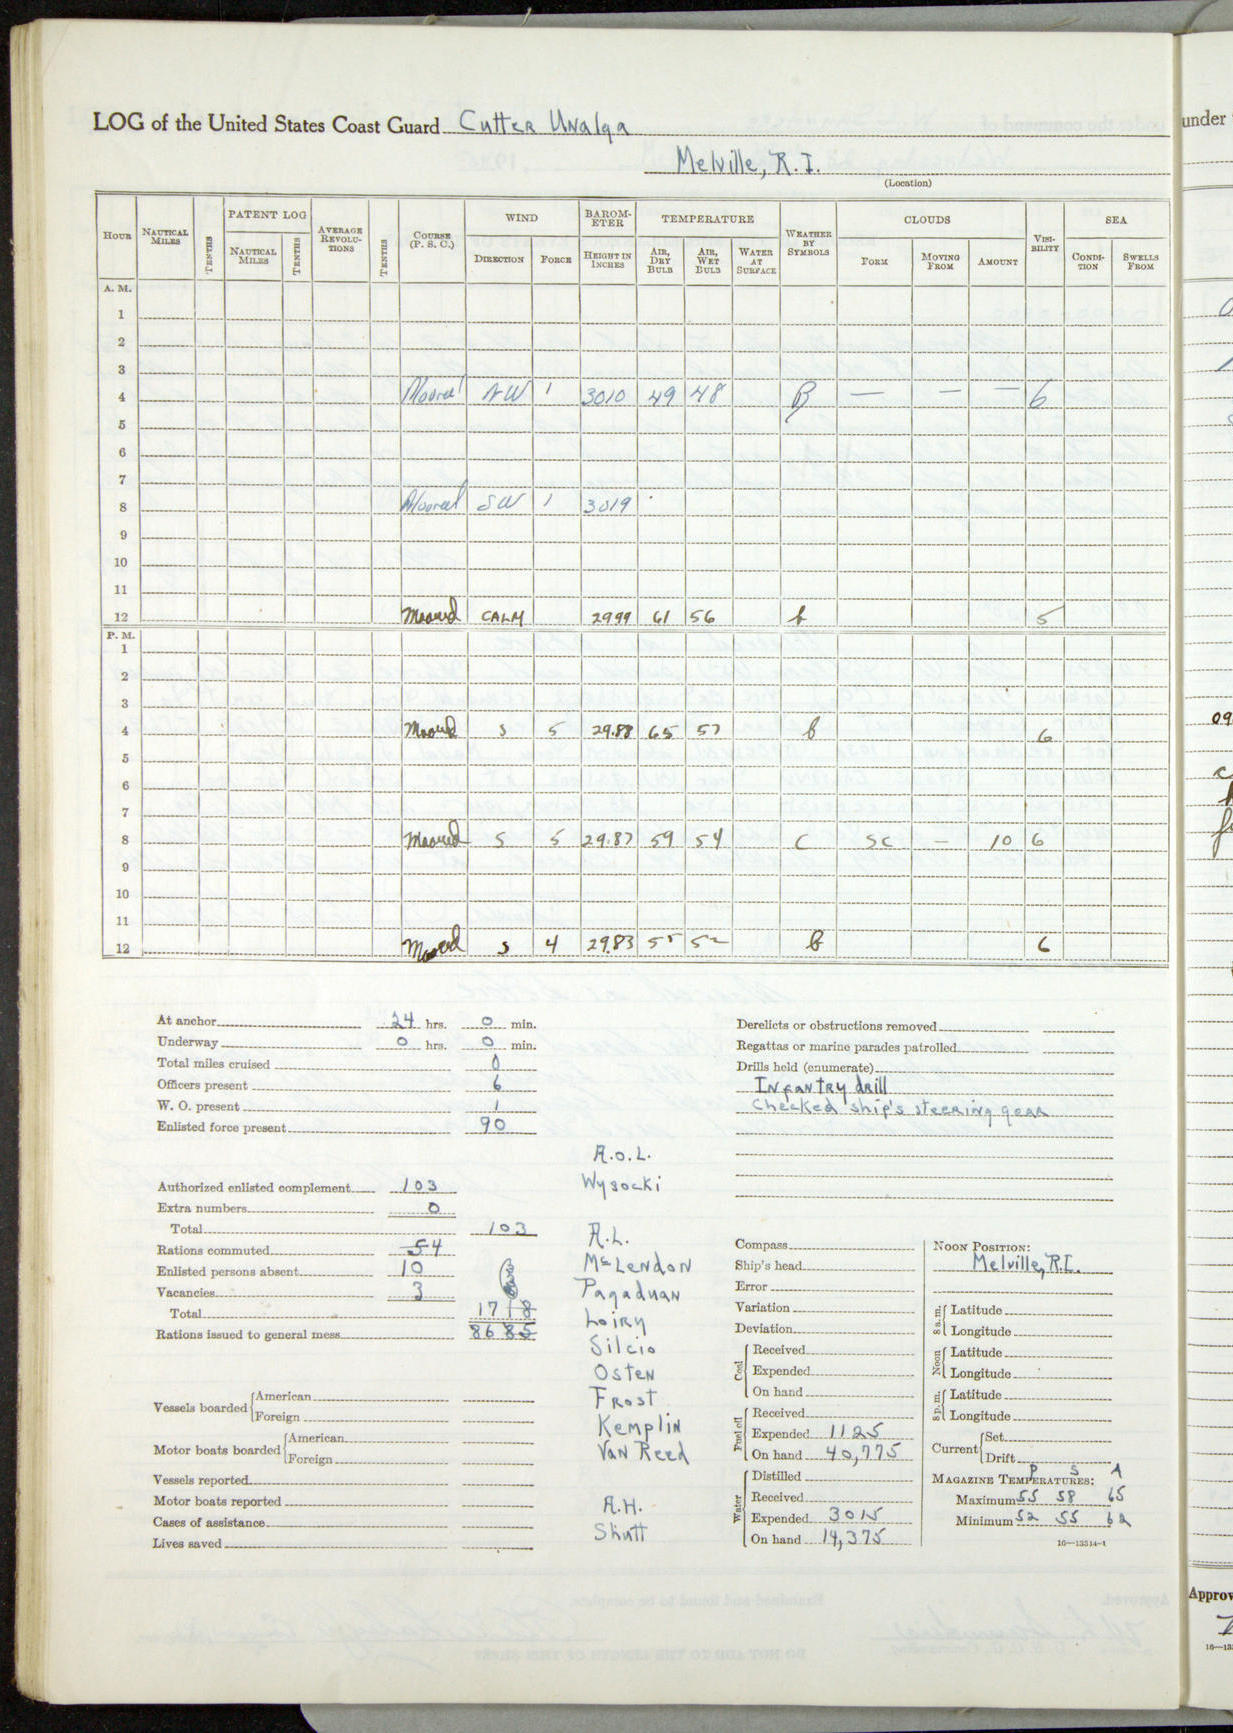 LOG of the United States Coast Guard Cutter Unalga
Melville, R.I.
(Location)
Hour
Nautical Miles
Tenths
Patent Log
Nautical Miles
Tenths
Average Revolutions
Tenths
Course (P. S. C.)
Wind
Direction
Force
Barometer
Height in Inches
Temperature
Air, Dry Bulb
Air, Wet Bulb
Water at Surface
Weather by Symbols
Clouds
Form
Moving From
Amount
Visibility
Sea
Condition
Swells From
A. M.
1
2
3
4 Moored NW 1 3010 49 48 B — — — 6
5
6
7
8 Moored SW 1 3019
9
10
11
12 Moored CALM 2999 61 56 b 5
P. M.
1
2
3
4 Moored S 5 29.88 65 57 b 6
5
6
7
8 Moored S 5 29.87 59 54 C SC — 10 6
9
10
11
12 Moored S 4 29.83 55 52 b 6
At anchor 24 hrs. 0 min.
Underway 0 hrs. 0 min.
Total miles cruised 0
Officers present 6
W. O. present 1
Enlisted force present 90
Authorized enlisted complement 103
Extra numbers 0
Total 103
Rations commuted 54
Enlisted persons absent 10
Vacancies 3
Total 17 18
Rations issued to general mess 86 85
Vessels boarded
American
Foreign
Motor boats boarded
American
Foreign
Vessels reported
Motor boats reported
Cases of assistance
Lives saved
A.O.L.
Wysocki
A.L.
McLendon
Pagaduan
Loiry
Silcio
Osten
Frost
Kemplin
Van Reed
A.H.
Shutt
Derelicts or obstructions removed
Regattas or marine parades patrolled
Drills held (enumerate)
Infantry drill
Checked ship's steering gear
Compass
Ship's head
Error
Variation
Deviation
Coal
Received
Expended
On hand
Fuel oil
Received
Expended 1125
On hand 40,775
Water
Distilled
Received
Expended 3015
On hand 14,375
Noon Position:
Melville, R.I.
8 a.m.
Latitude
Longitude
Noon
Latitude
Longitude
8 p.m.
Latitude
Longitude
Current
Set
Drift
P S A
Magazine Temperatures:
Maximum 55 58 65
Minimum 52 55 62
16—13514-1
under
09
Approv
16—13